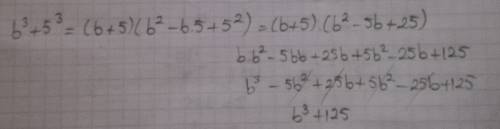 b³+5³= (b+5)(b²-b.5+5²)=(b+5).(b²-5b+25)
b.b²-5bb+25b+5b²-25b+125
b³-5b²+25b+5b²-25b+125
b³+125